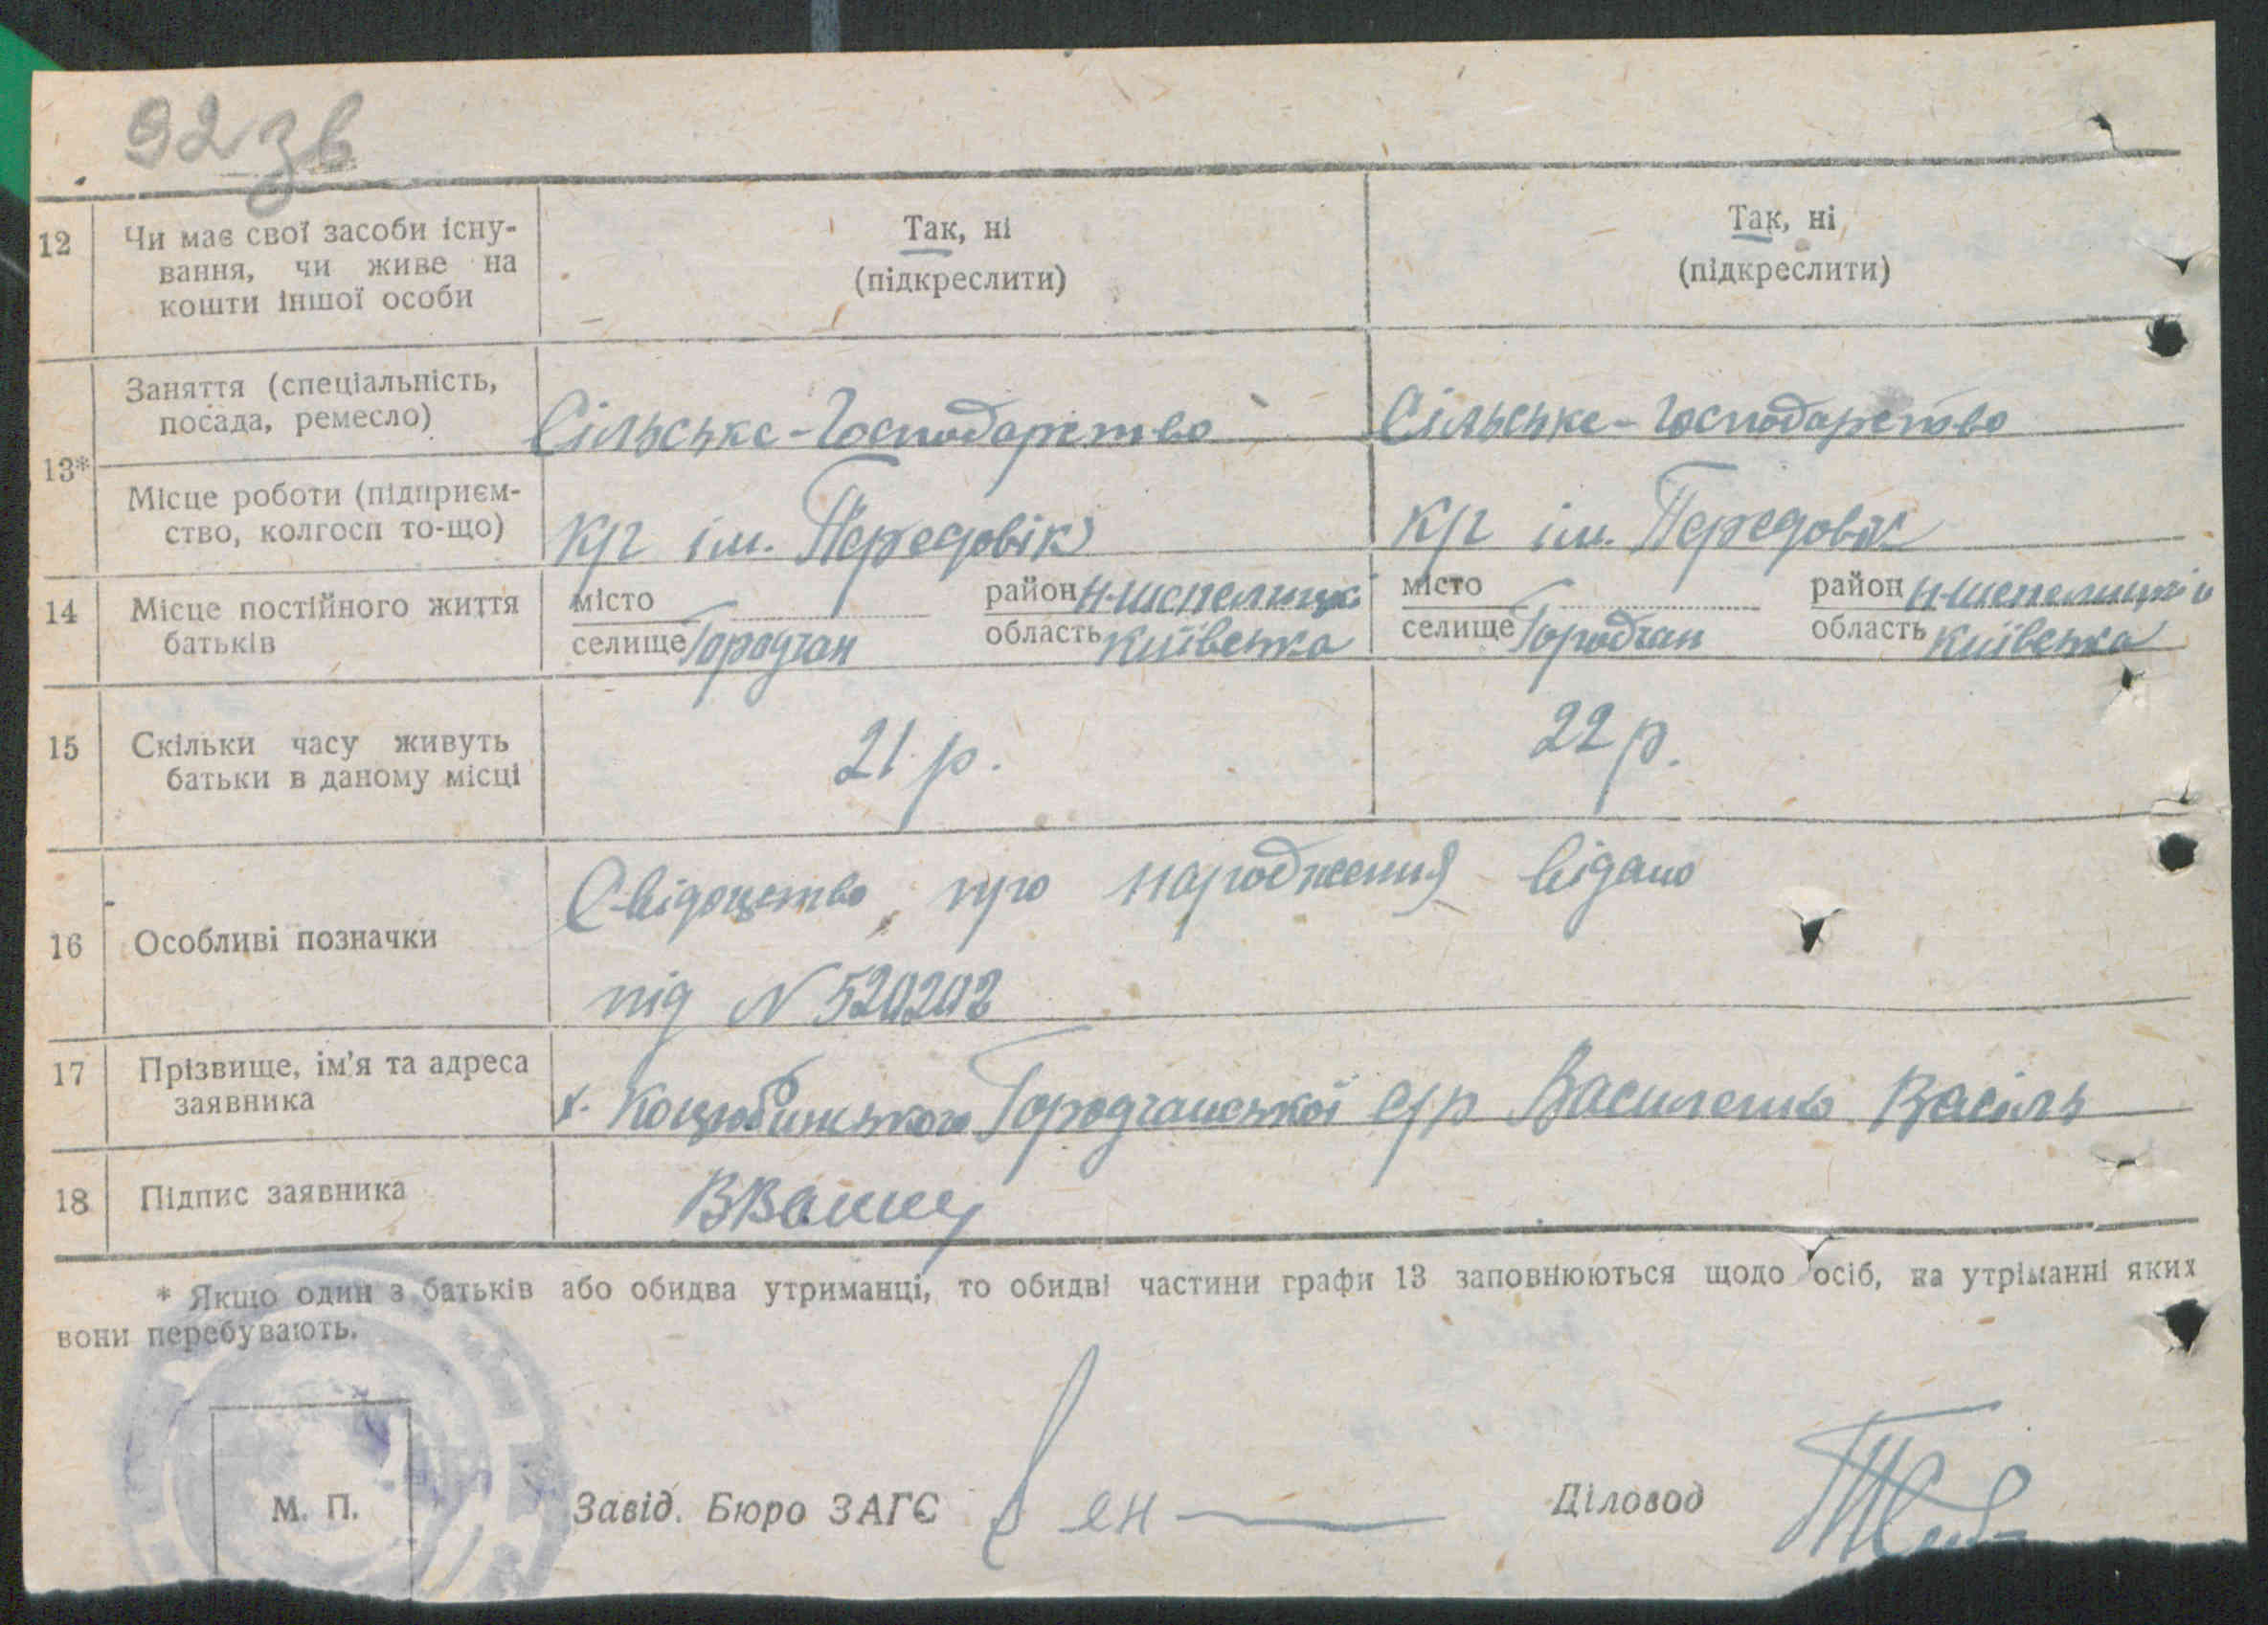 92 зв
12 Чи має свої засоби існу-
вання, чи живе на
кошти іншої особи
Так, ні
(підкреслити)
Так, ні
(підкреслити)
13*
Заняття (спеціальність,
посада, ремесло)
Сільське-Господарство
Сільське-Господарство
Місце роботи (підприєм-
ство, колгосп то-що)
Кјг ім. Передовік
Кјг ім. Передовік
14 Місце постійного життя
батьків
місто район Н-Шепелицкі
селище Городчан область Київська
місто район Н-Шепелицкі
селище Городчан область Київська
15 Скільки часу живуть
батьки в даному місці
21 р.
22 р.
16 Особливі позначки
Свідоцтво про народження відано
під N 520202
17 Прізвище, ім'я та адреса
заявника
х. Коцюбинського Городчанської с/р Василенко Васіль
18 Підпис заявника
* Якщо один з батьків або обидва утриманці, то обидві частини графи 13 заповнюються щодо осіб, на утріманні яких
вони перебувають.
М. П.
Завід. Бюро ЗАГС
Діловод